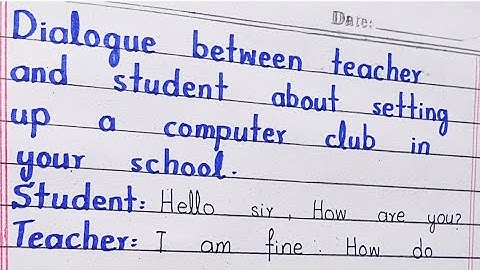 Date:
Dialogue between teacher
and student about setting
up a computer club in
your school.
Student: Hello sir, How are you?
Teacher: I am fine. How do